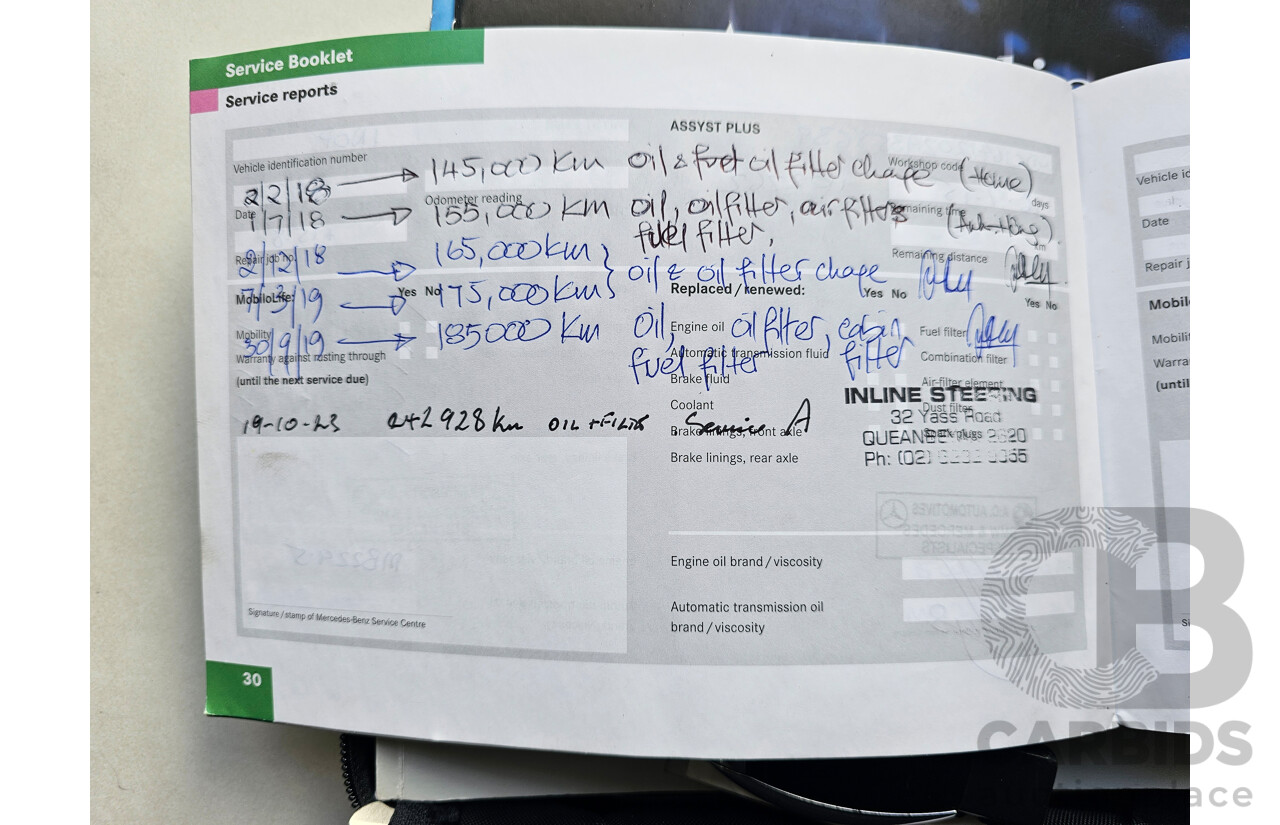 Service Booklet
Service reports
ASSYST PLUS
Vehicle identification number
Workshop code
2/2/18 → 145,000 Km oil & fuel oil filter change (Home)
Date
Odometer reading
Remaining time
days
1/7/18 → 155,000 Km oil, oil filter, air filters
fuel filter,
Repair job no.
Remaining distance
km
2/12/18 → 165,000 km } oil & oil filter change
MobiloLife:
Yes No
Replaced / renewed:
Yes No
Yes No
7/3/19 → 175,000 km
Mobility
Engine oil
Fuel filter
30/9/19 → 185000 Km oil, oil filter, cabin filter
fuel filter
Warranty against rusting through
(until the next service due)
Automatic transmission fluid
Combination filter
Brake fluid
Air-filter element
Coolant
Dust filter
Brake linings, front axle
Spark plugs
Brake linings, rear axle
19-10-23 242928 km OIL + FILTER Service A
INLINE STEERING
32 Yass Road
2620
Ph: (02)
Engine oil brand / viscosity
Automatic transmission oil
brand / viscosity
Signature / stamp of Mercedes-Benz Service Centre
30
Vehicle id
Date
Repair j
Mobil
Mobili
Warra
(until
Si
CARBIDS